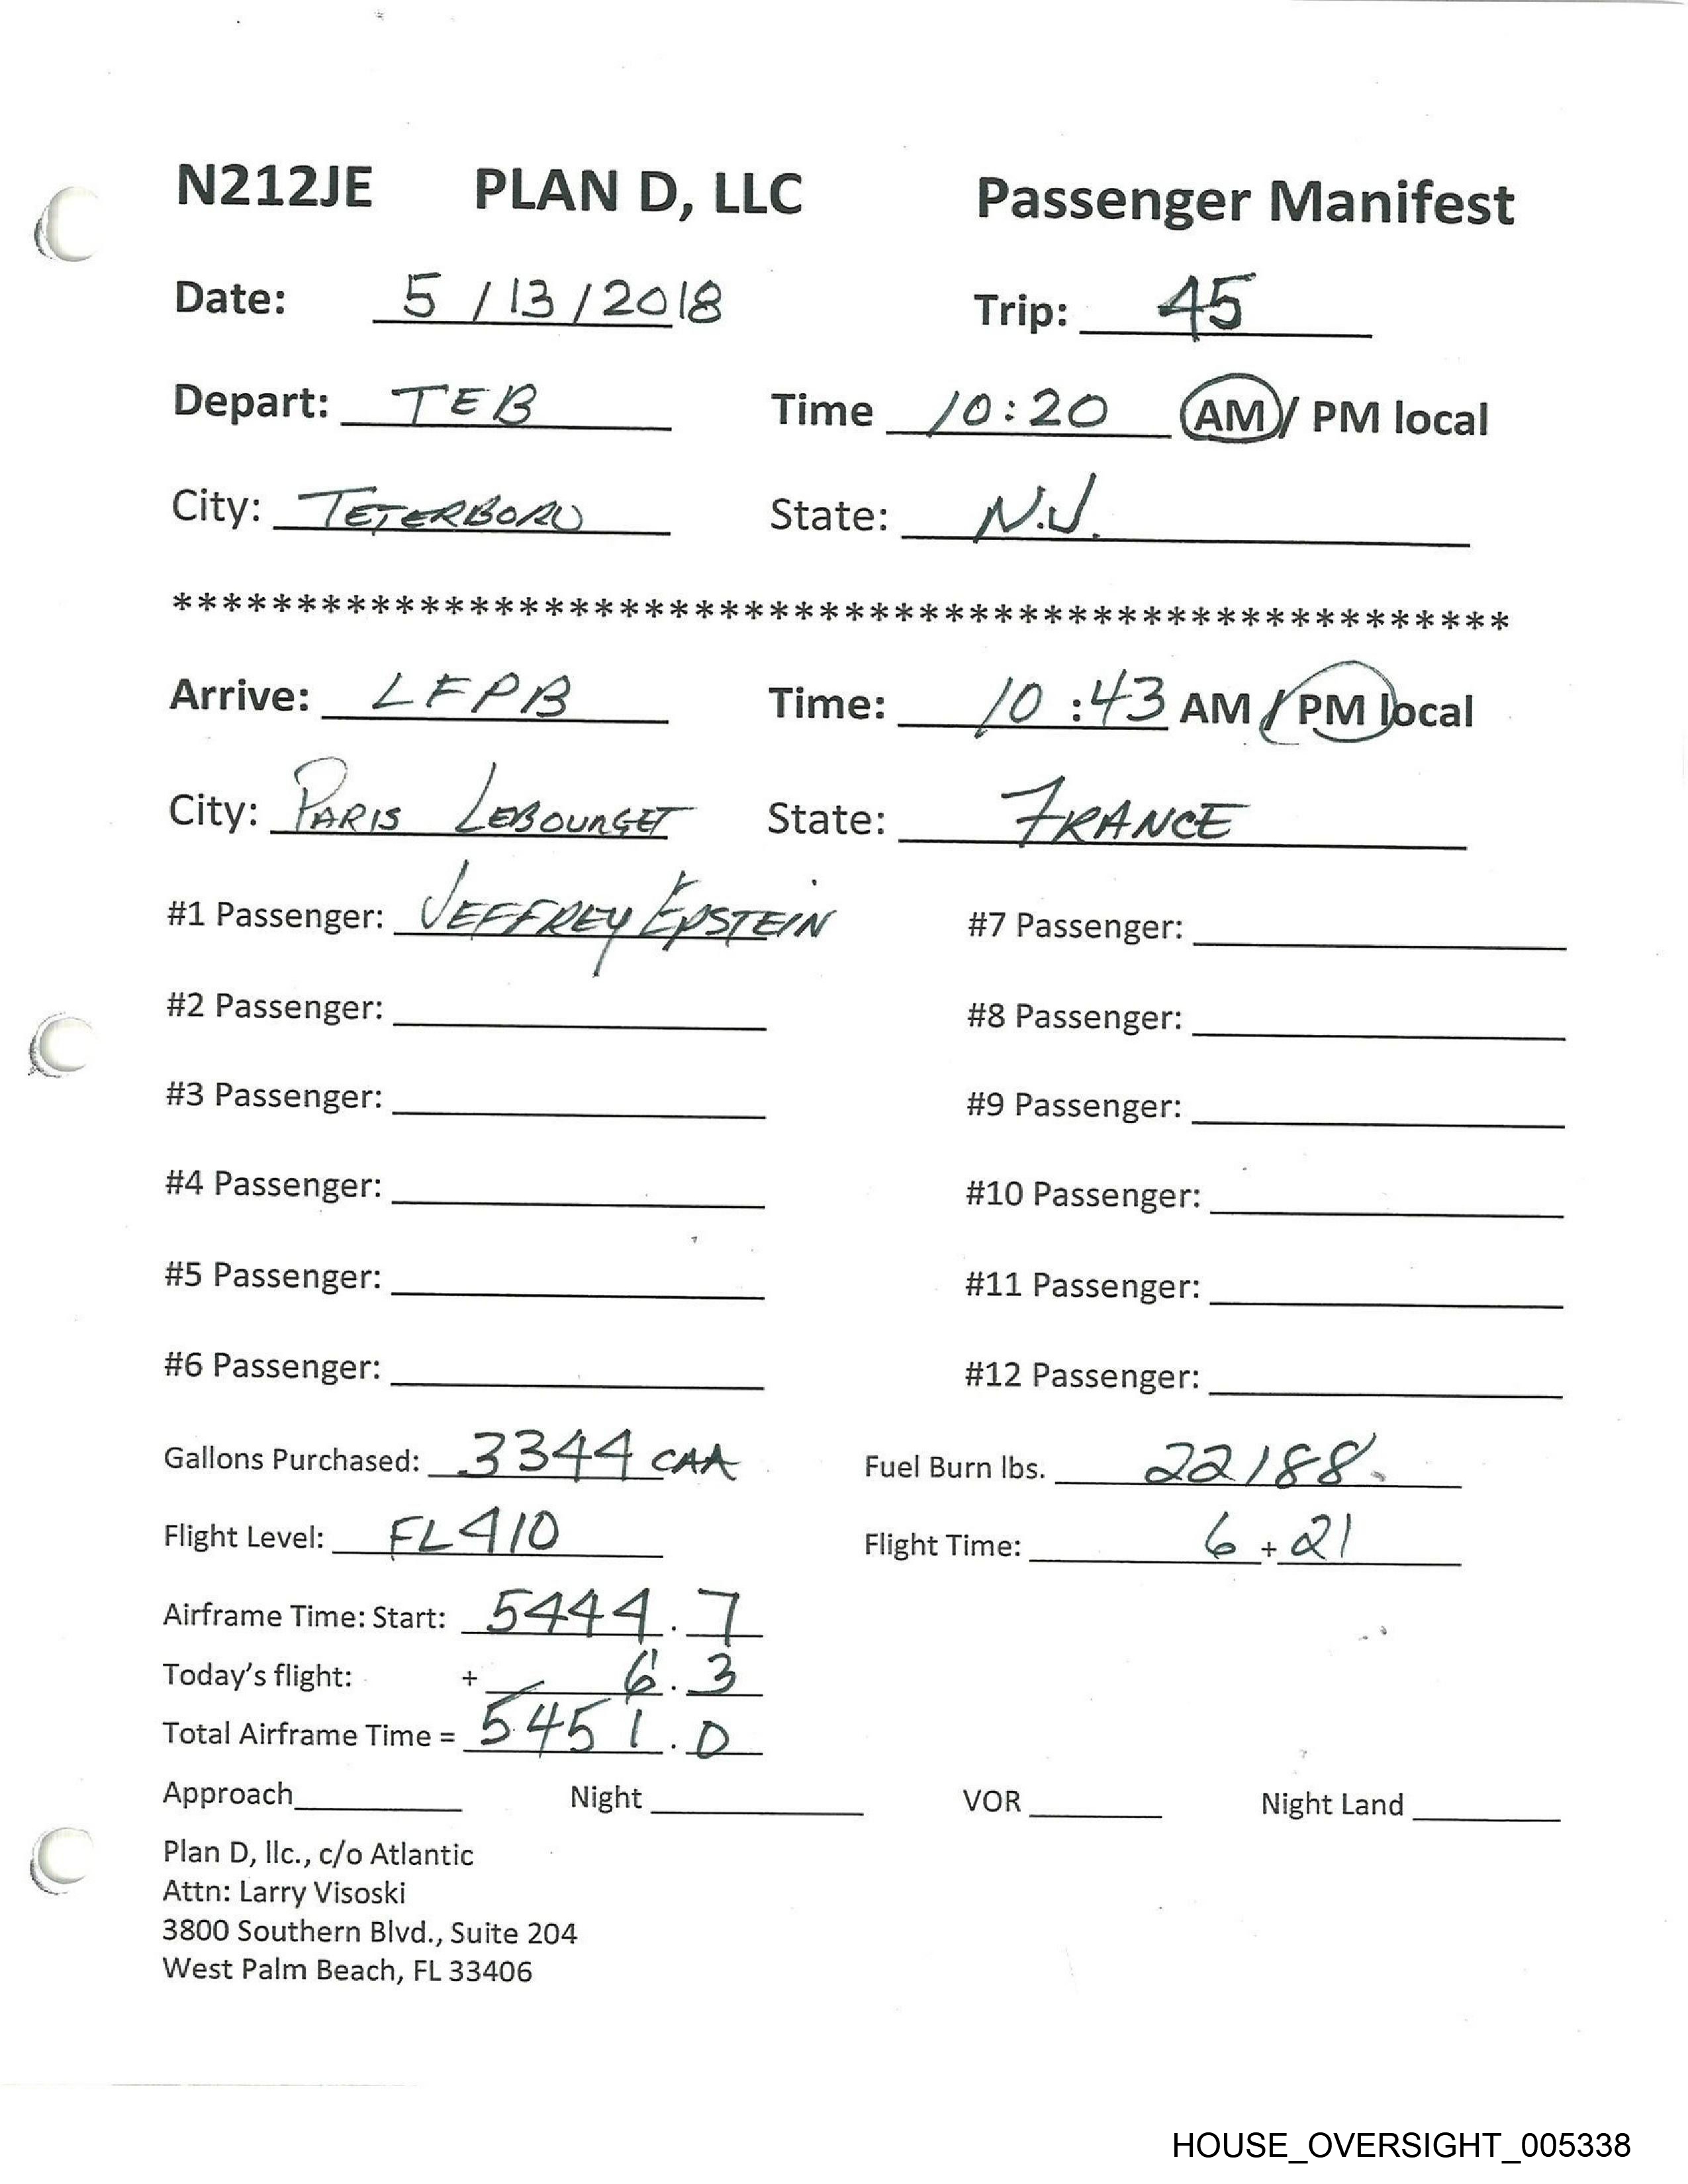 N212JE PLAN D, LLC Passenger Manifest
Date: 5 / 13 / 2018 Trip: 45
Depart: TEB Time 10:20 AM / PM local
City: TETERBORO State: N.J.
******************************************************
Arrive: LFPB Time: 10 :43 AM / PM local
City: PARIS LEBOURGET State: FRANCE
#1 Passenger: JEFFREY EPSTEIN #7 Passenger:
#2 Passenger: #8 Passenger:
#3 Passenger: #9 Passenger:
#4 Passenger: #10 Passenger:
#5 Passenger: #11 Passenger:
#6 Passenger: #12 Passenger:
Gallons Purchased: 3344 CAA Fuel Burn lbs. 22188.
Flight Level: FL410 Flight Time: 6 + 21
Airframe Time: Start: 5444.7
Today's flight: + 6.3
Total Airframe Time = 5451.0
Approach Night VOR Night Land
Plan D, llc., c/o Atlantic
Attn: Larry Visoski
3800 Southern Blvd., Suite 204
West Palm Beach, FL 33406
HOUSE_OVERSIGHT_005338